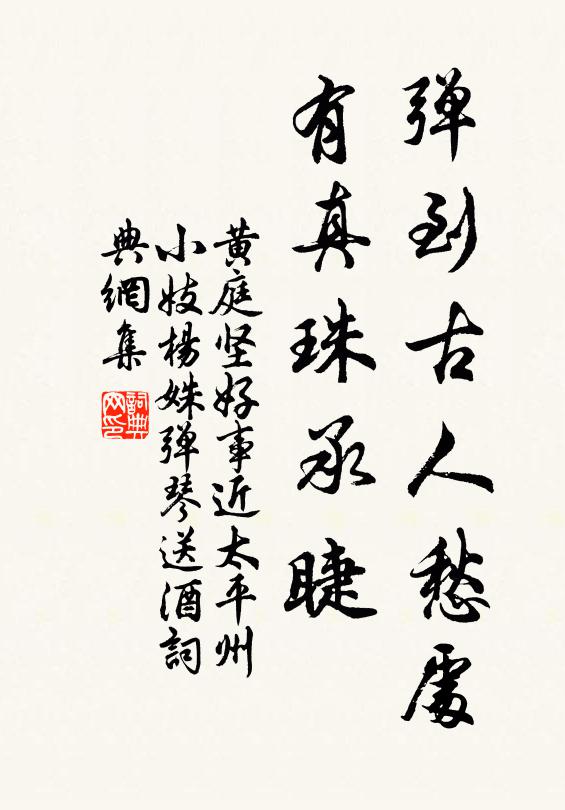 弹到古人愁處
有真珠承睫
黄庭坚好事近太平州
小妓楊姝弹琴送酒詞
典網集
詞典网印